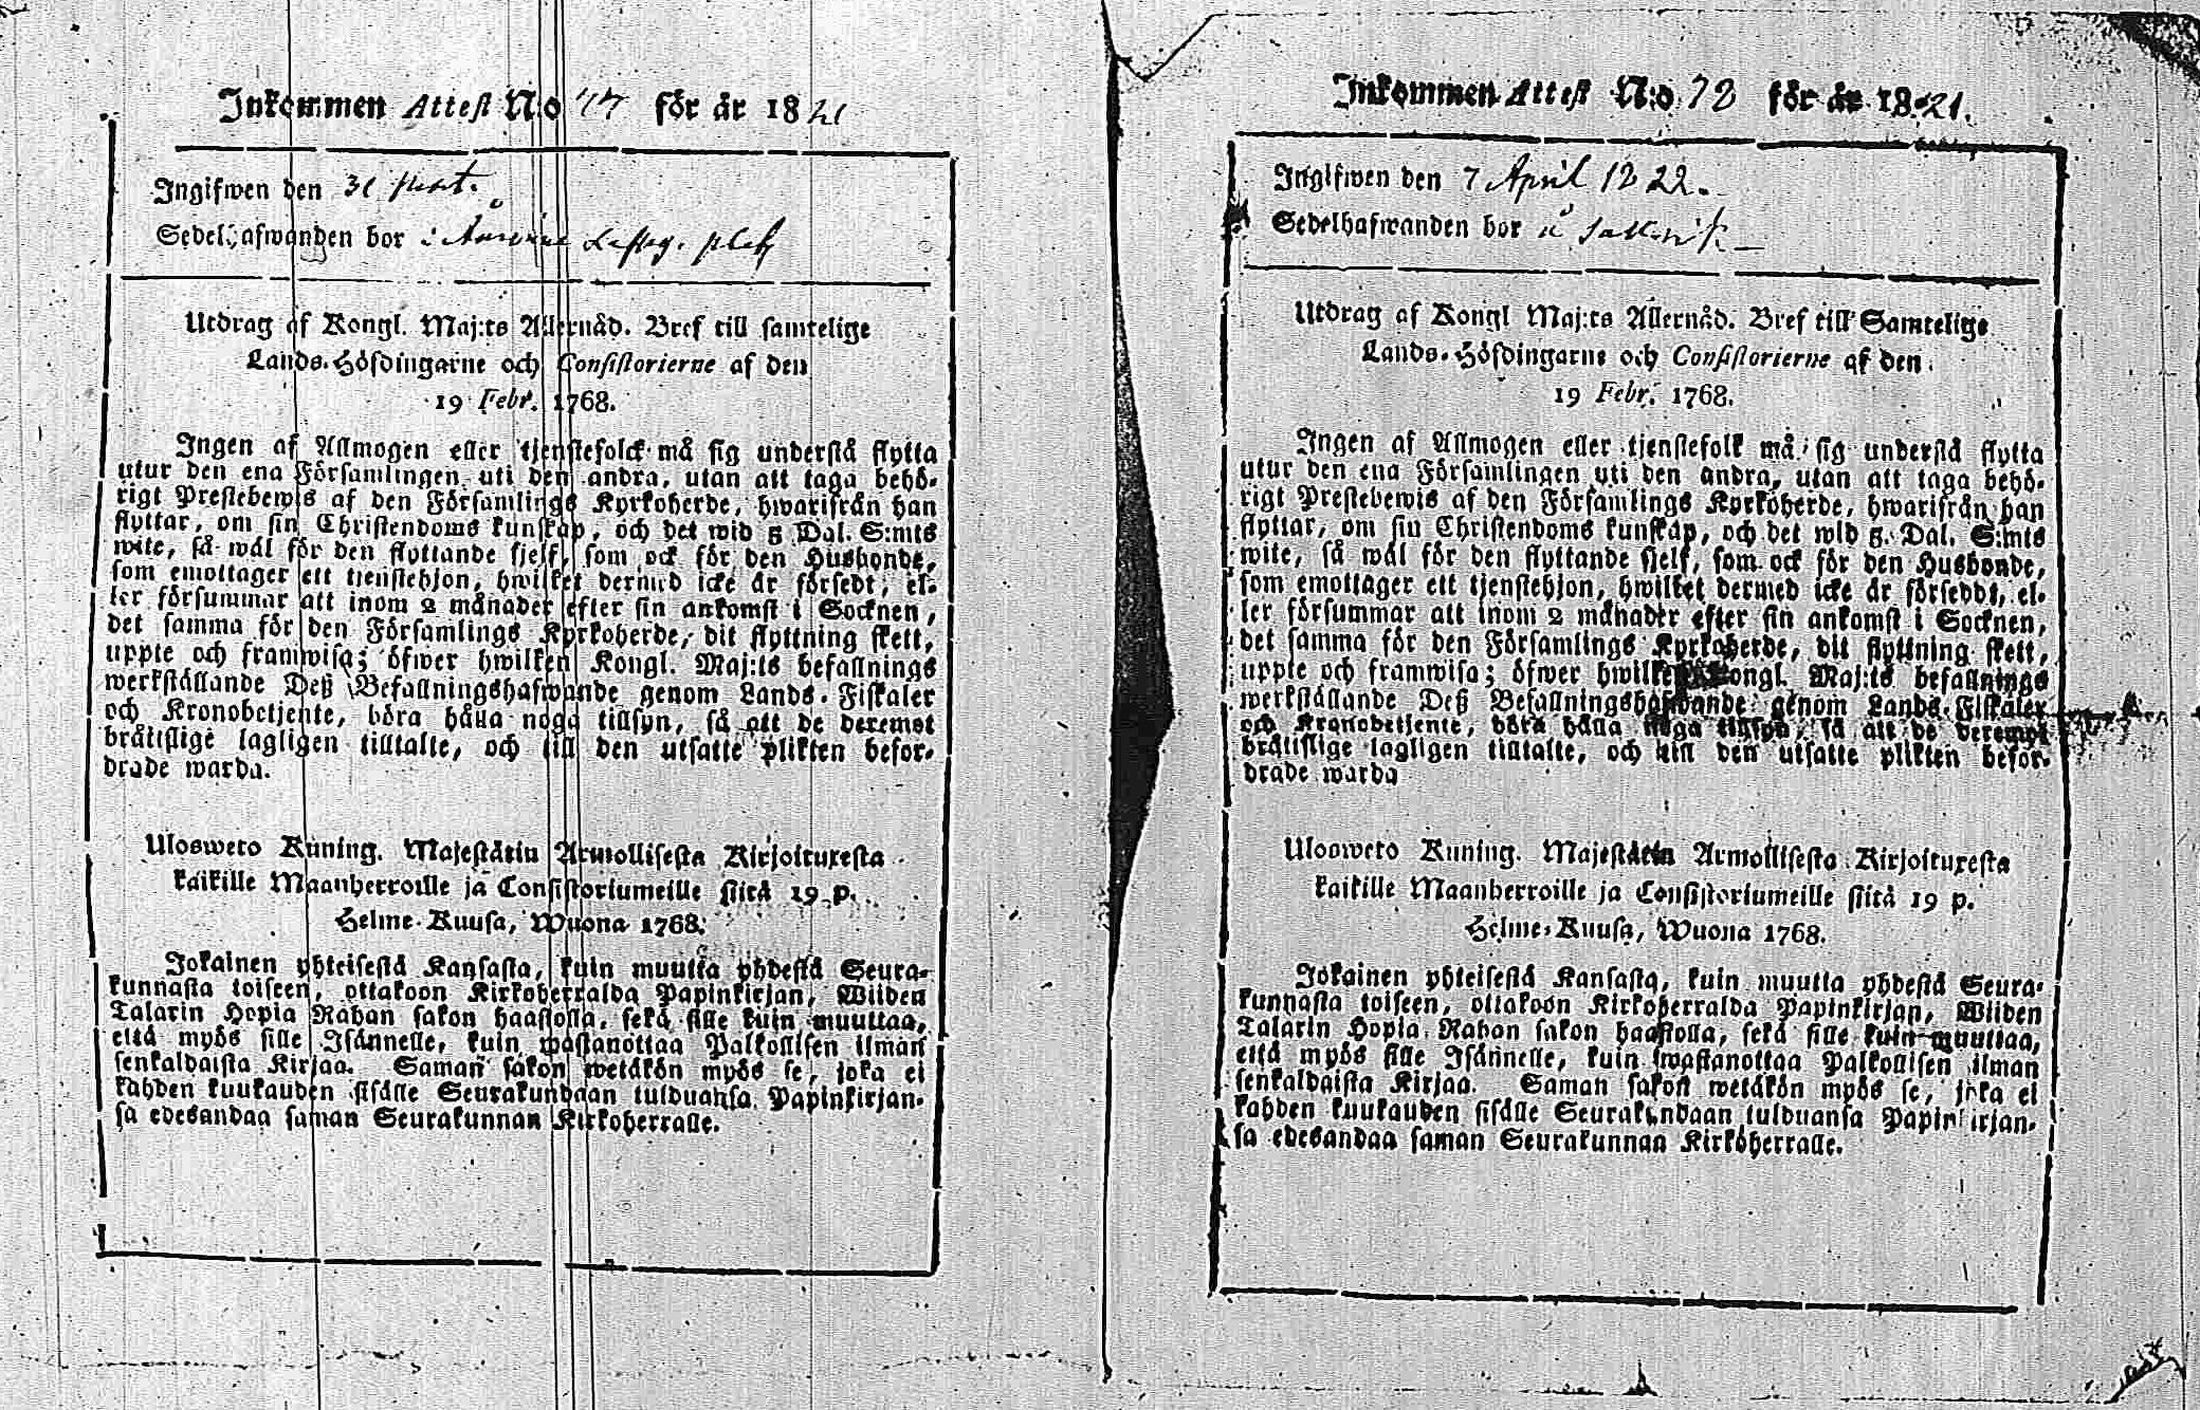 Inkommen Attest No 77 för år 1821
Ingifwen den 31
Sedelhafwanden bor i
Utdrag af Kongl. Maj:ts Allernåd. Bref till samtelige
Lands-Höfdingarne och Consistorierne af den
19 Febr. 1768.
Ingen af Allmogen eller tjenstefolck må sig understå flytta
utur den ena Församlingen uti den andra, utan att taga behö-
rigt Prestebewis af den Församlings Kyrkoherde, hwarifrån han
flyttar, om sin Christendoms kunskap, och det wid 5 Dal. S:mts
wite, så wäl för den flyttande sjelf, som ock för den Husbonde,
som emottager ett tjenstehjon, hwilket dermed icke är försedt, el-
ler försummar att inom 2 månader efter sin ankomst i Socknen,
det samma för den Församlings Kyrkoherde, dit flyttning skett,
uppte och framwisa; öfwer hwilken Kongl. Maj:ts befallnings
werkställande Deß Befallningshafwande genom Lands-Fiskaler
och Kronobetjente, böra hålla noga tillsyn, så att de deremot
bråttslige lagligen tilltalte, och till den utsatte plikten befor-
drade warda.
Ulosweto Kuning. Majestätin Armollisesta Kirjoituxesta
kaikille Maanherroille ja Consistoriumeille siitä 19 p.
Helme-Kuusa, Wuona 1768.
Jokainen yhteisestä Kansasta, kuin muutta yhdestä Seura-
kunnasta toiseen, ottakoon Kirkoherralda Papinkirjan, Wiiden
Talarin Hopia Rahan sakon haastolla, sekä sille kuin muuttaa,
että myös sille Isännelle, kuin wastanottaa Palkollisen ilman
senkaldaista Kirjaa. Saman sakon wetäkön myös se, joka ei
kahden kuukauden sisälle Seurakundaan tulduansa Papinkirjan-
sa edesandaa saman Seurakunnan Kirkoherralle.
Inkommen Attest N:o 78 för år 1821.
Ingifwen den 7 April 1822.
Sedelhafwanden bor å
Utdrag af Kongl Maj:ts Allernåd. Bref till Samtelige
Lands-Höfdingarne och Consistorierne af den
19 Febr. 1768.
Ingen af Allmogen eller tjenstefolk må sig understå flytta
utur den ena Församlingen uti den andra, utan att taga behö-
rigt Prestebewis af den Församlings Kyrkoherde, hwarifrån han
flyttar, om sin Christendoms kunskap, och det wid 5. Dal. S:mts
wite, så wäl för den flyttande sjelf, som ock för den Husbonde,
som emottager ett tjenstehjon, hwilket dermed icke är försedt, el-
ler försummar att inom 2 månader efter sin ankomst i Socknen,
det samma för den Församlings Kyrkoherde, dit flyttning skett,
uppte och framwisa; öfwer hwilken Kongl. Maj:ts befallnings
werkställande Deß Befallningshafwande genom Lands-Fiskaler
och Kronobetjente, böra hålla noga tillsyn, så att de deremot
bråttslige lagligen tilltalte, och till den utsatte plikten befor-
drade warda
Ulosweto Kuning. Majestätin Armollisesta Kirjoituxesta
kaikille Maanherroille ja Consistoriumeille siitä 19 p.
Helme-Kuusa, Wuona 1768.
Jokainen yhteisestä Kansasta, kuin muutta yhdestä Seura-
kunnasta toiseen, ottakoon Kirkoherralda Papinkirjan, Wiiden
Talarin Hopia Rahan sakon haastolla, sekä sille kuin muuttaa,
että myös sille Isännelle, kuin wastanottaa Palkollisen ilman
senkaldaista Kirjaa. Saman sakon wetäkön myös se, joka ei
kahden kuukauden sisälle Seurakundaan tulduansa Papinkirjan-
sa edesandaa saman Seurakunnan Kirkoherralle.